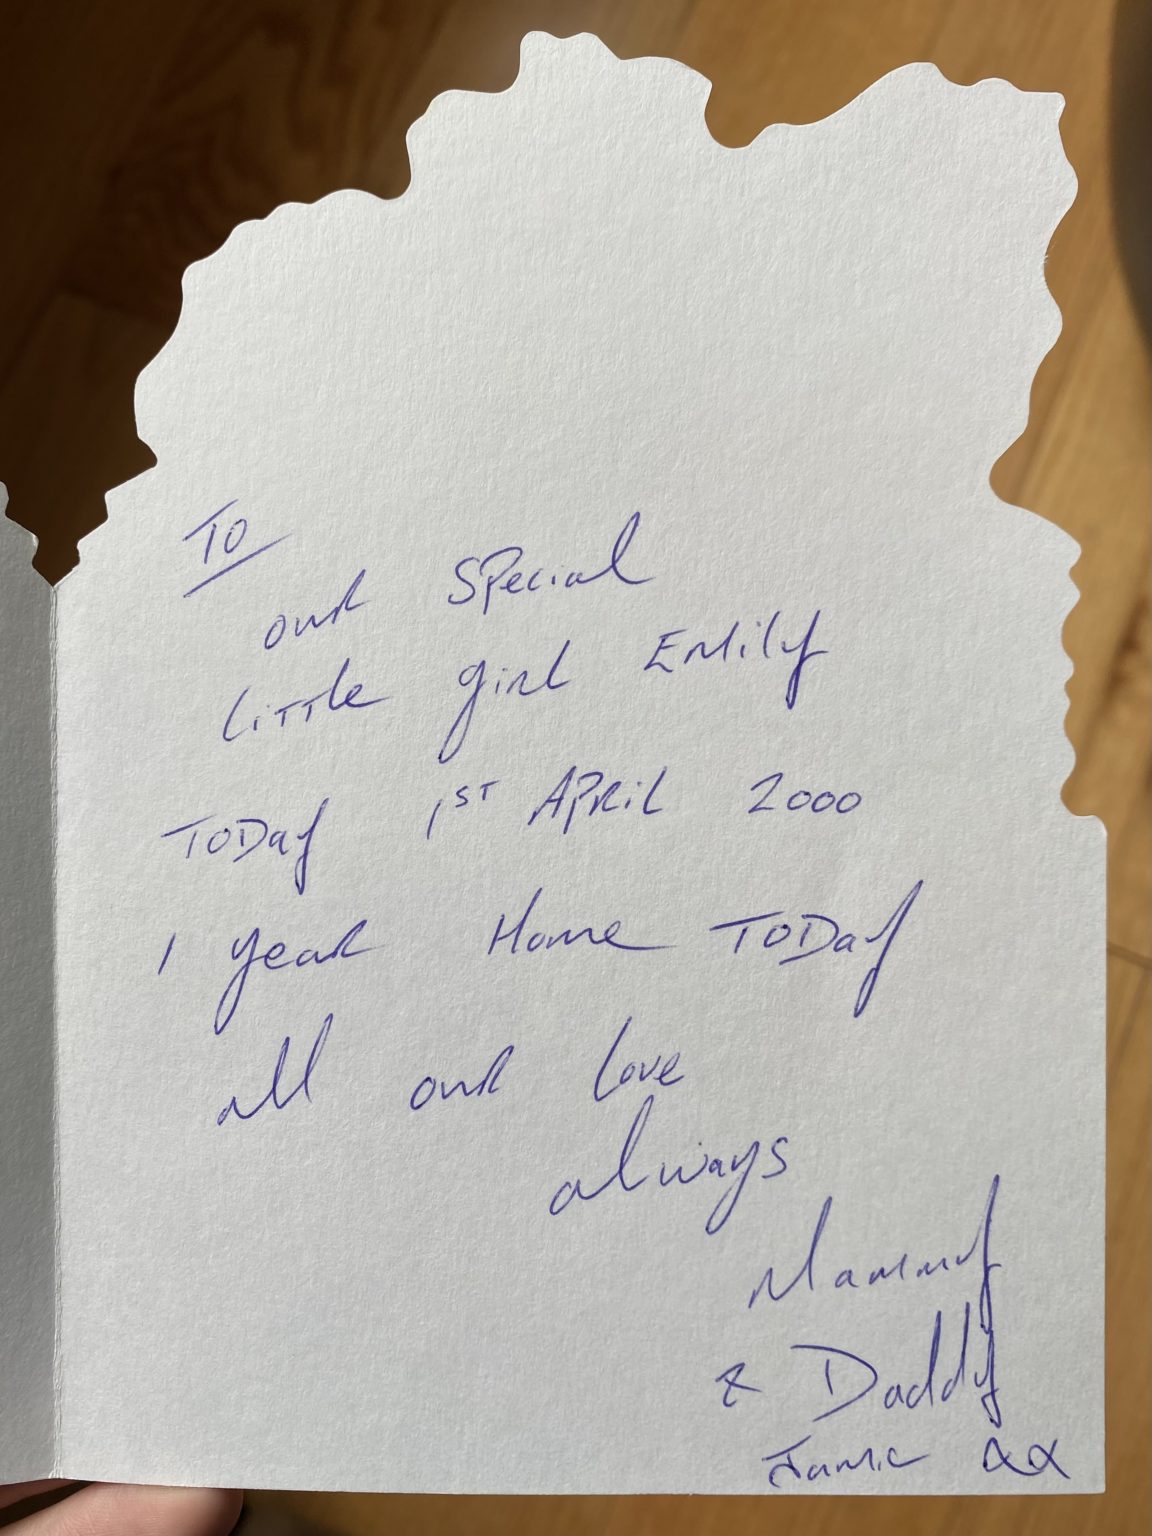 TO
our Special
little girl Emily
TODay 1ST APRil 2000
1 year Home TODay
all our love
always
Mammy
& Daddy
Jamie xx